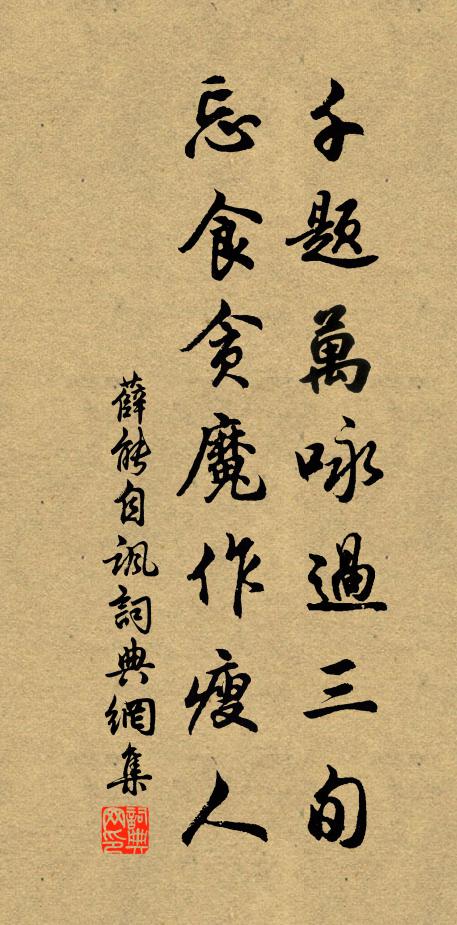 千題萬咏過三旬
忘食貪魔作瘦人
薛能自諷詞典網集
詞典网印